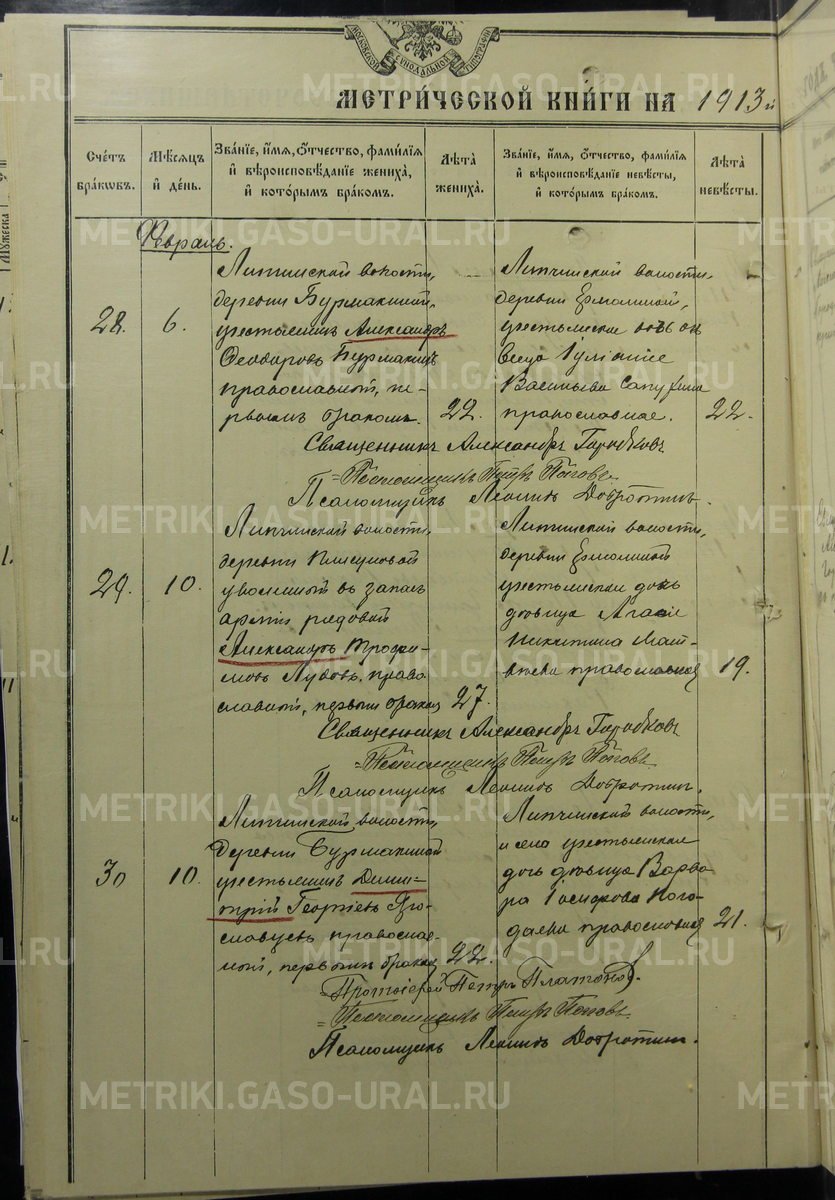 МОСКОВСКОЙ СѴНОДАЛЬНОЙ ТИПОГРАФІИ
МЕТРИ́ЧЕСКОЙ КНИ́ГИ НА 1913 й
Счётъ бра́кѡвъ.
Мѣсяцъ и де́нь.
Зва́нїе, и́мя, ѻ́тчество, фами́лїя и вѣроисповѣ́данїе жениха̀, и кото́рымъ бра́комъ.
Лѣта̀ жениха̀.
Зва́нїе, и́мя, ѻ́тчество, фами́лїя и вѣроисповѣ́данїе невѣ́сты, и кото́рымъ бра́комъ.
Лѣта̀ невѣ́сты.
Февраль.
28. 6.
Липчинской волости,
деревни Бурмакиной,
крестьянинъ Александръ
Ѳеодоровъ Бурмакинъ
православный, пе-
рвымъ бракомъ. 22.
Липчинской волости,
деревни Ермолиной,
крестьянская
Іуліанія
Васильева
православная. 22.
Священникъ Александръ
Псаломщикъ Петръ Поповъ
Псаломщикъ Леонидъ Добротинъ.
29. 10.
Липчинской волости,
деревни
уволенный въ запасъ
арміи рядовой
Александръ Трофи-
мовъ православный, первымъ бракомъ 27.
Липчинской волости,
деревни Ермолиной
крестьянская дочь
дѣвица Агаѳія
Никитина Мат-
вѣева православная 19.
Священникъ Александръ
Псаломщикъ Петръ Поповъ
Псаломщикъ Леонидъ Добротин.
30 10.
Липчинской волости,
деревни Бурмакиной
крестьянинъ Дими-
трій Георгіевъ Яро-
славцевъ православ-
ный, первымъ бракомъ 22.
Липчинской волости,
и села крестьянская
дочь дѣвица Варва-
ра Іосифова Пого-
даева православная 21.
Протоіерей Петръ Платоновъ.
Псаломщикъ Петръ Поповъ
Псаломщикъ Леонидъ Добротин.
METRIKI.GASO-URAL.RU